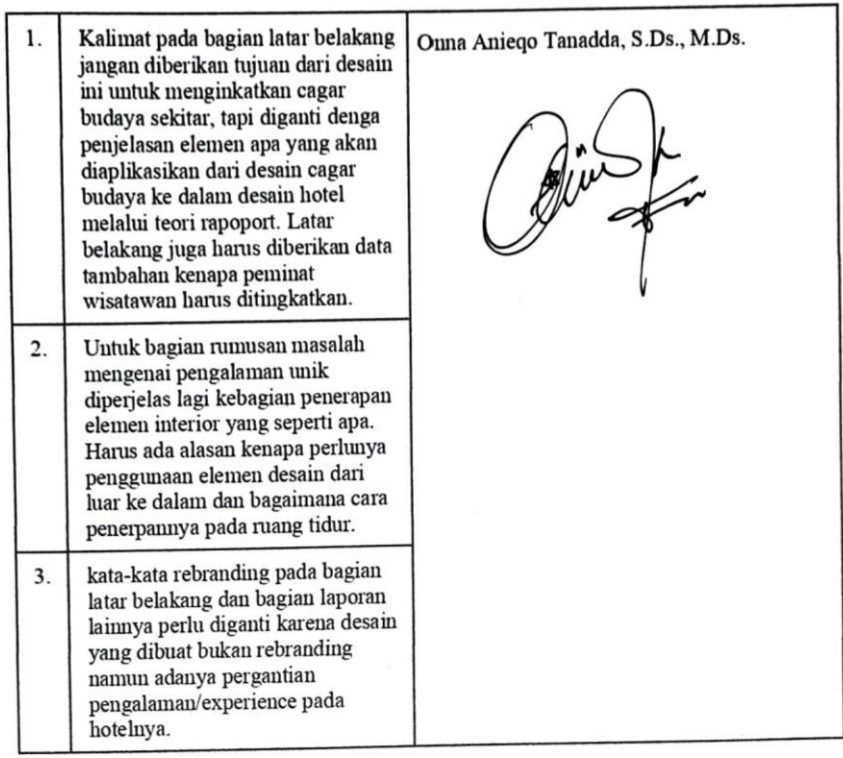 1.
Kalimat pada bagian latar belakang
jangan diberikan tujuan dari desain
ini untuk menginkatkan cagar
budaya sekitar, tapi diganti denga
penjelasan elemen apa yang akan
diaplikasikan dari desain cagar
budaya ke dalam desain hotel
melalui teori rapoport. Latar
belakang juga harus diberikan data
tambahan kenapa peminat
wisatawan harus ditingkatkan.
Onna Anieqo Tanadda, S.Ds., M.Ds.
2.
Untuk bagian rumusan masalah
mengenai pengalaman unik
diperjelas lagi kebagian penerapan
elemen interior yang seperti apa.
Harus ada alasan kenapa perlunya
penggunaan elemen desain dari
luar ke dalam dan bagaimana cara
penerpannya pada ruang tidur.
3.
kata-kata rebranding pada bagian
latar belakang dan bagian laporan
lainnya perlu diganti karena desain
yang dibuat bukan rebranding
namun adanya pergantian
pengalaman/experience pada
hotelnya.